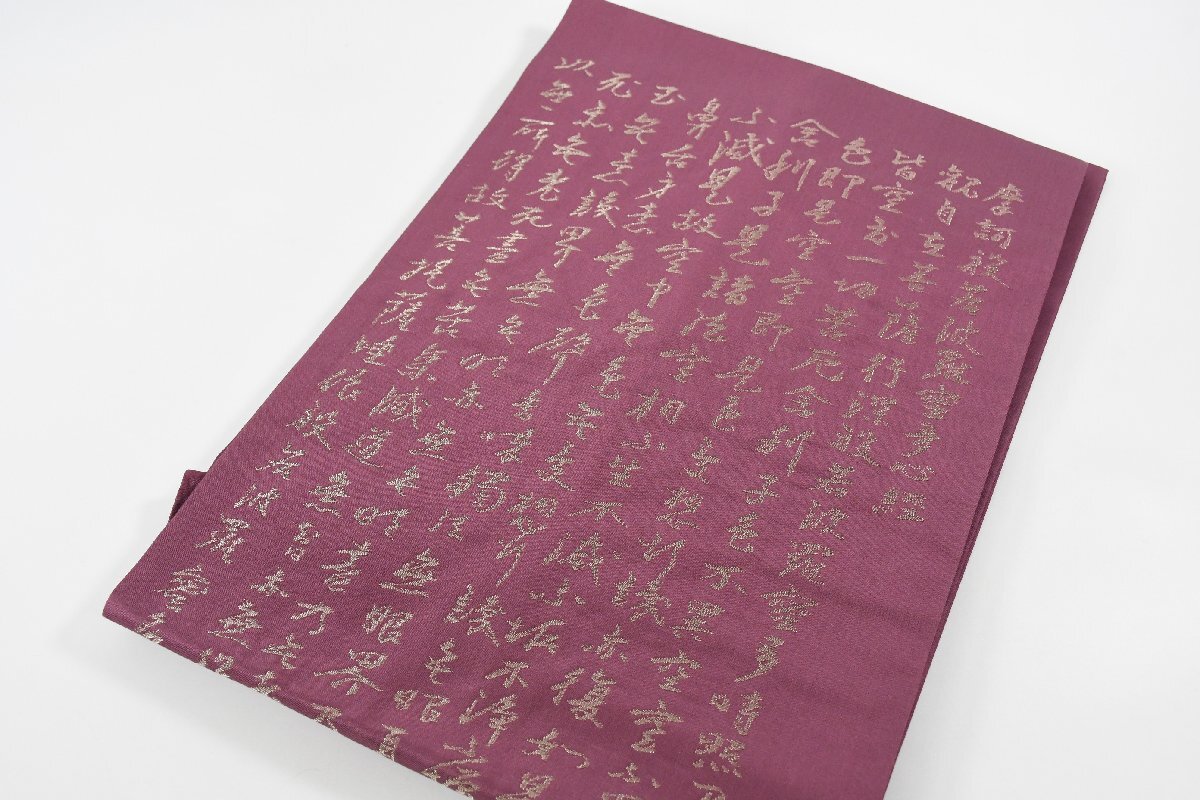 摩訶般若波羅蜜多心経
觀自在菩薩行深般若波羅蜜多時照
皆空度一切苦厄舍利子色不異空空不
色即是空空即是色受想行識亦復如是
舍利子是諸法空相不生不滅不垢不淨不
不減是故空中無色無受想行識無眼
鼻舌身意無色聲香味觸法無眼界
至無意識界無無明亦無無明盡乃至
死亦無老死盡無苦集滅道無智亦無得
以無所得故菩提薩埵依般若波羅蜜多